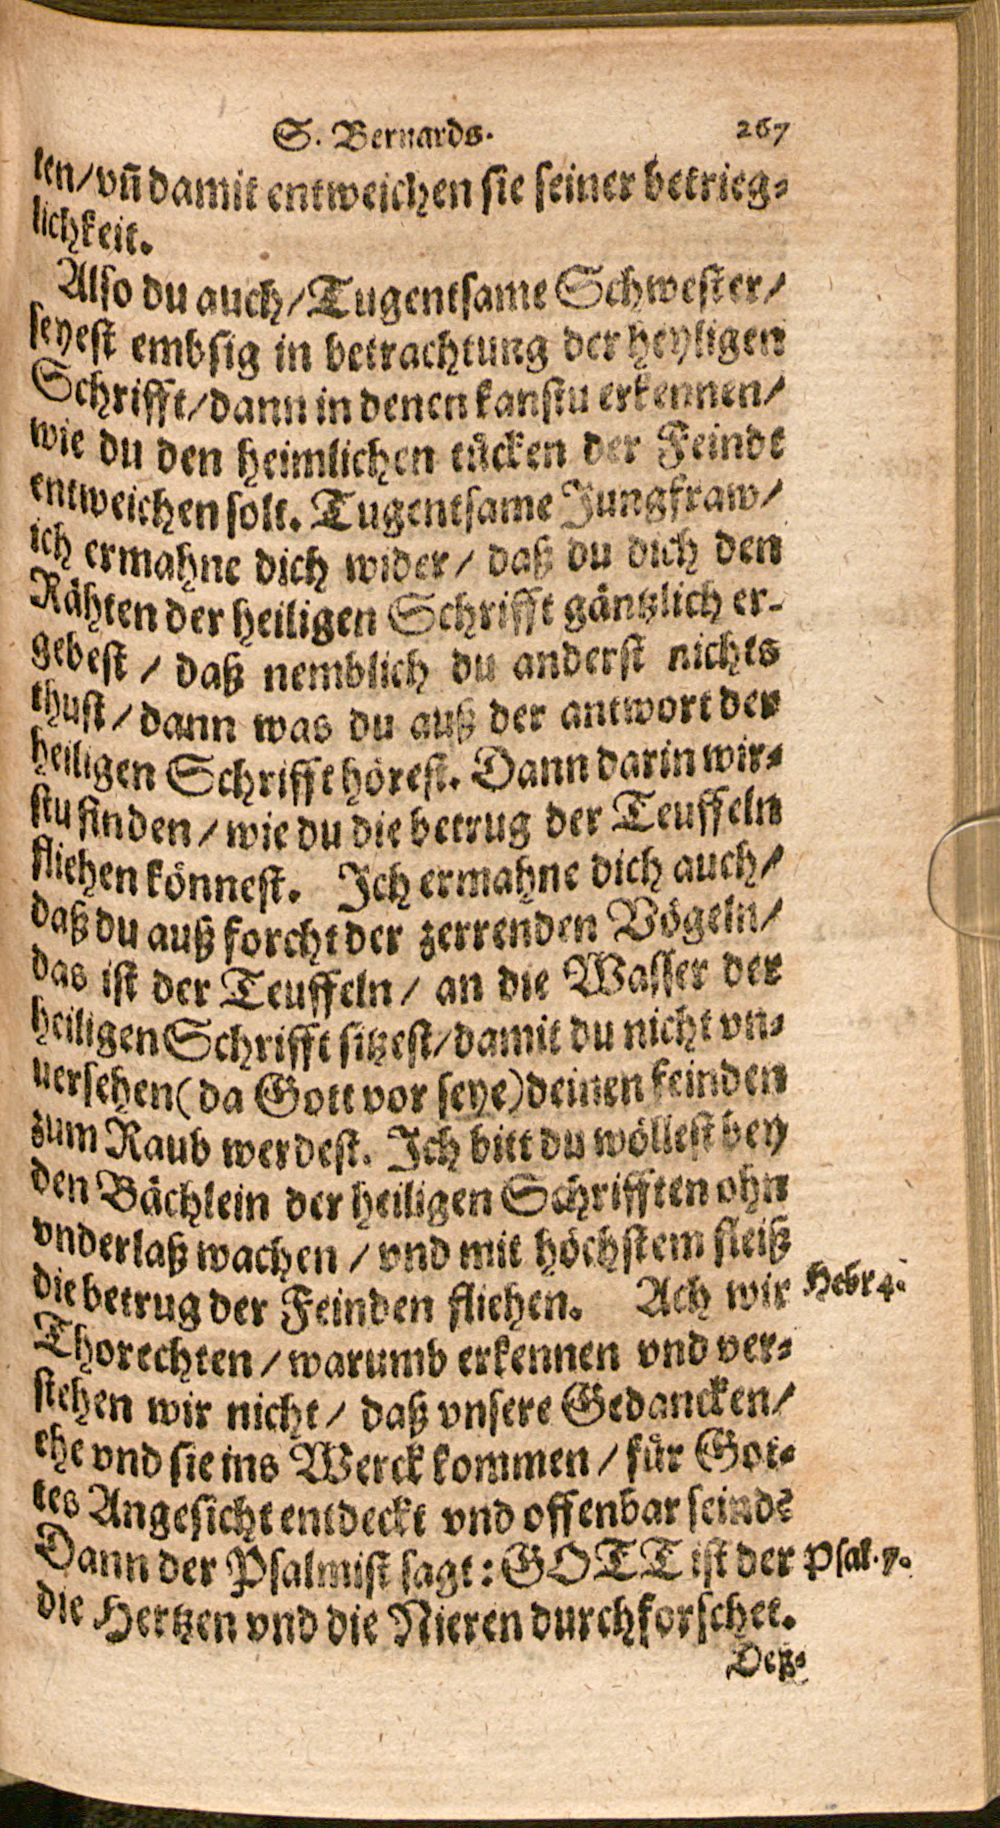 S. Bernards. 267
ten/vñ damit entweichen sie seiner betrieg-
lichkeit.
Also du auch/Tugentsame Schwester/
seyest embsig in betrachtung der heyligen
Schrifft/dann in denen kanstu erkennen/
wie du den heimlichen tücken der Feinde
entweichen solt. Tugentsame Jungfraw/
ich ermahne dich wider/ daß du dich den
Rähten der heiligen Schrifft gäntzlich er-
gebest / daß nemblich du anderst nichts
thust/dann was du auß der antwort der
heiligen Schrifft hörest. Dann darin wir-
stu finden/wie du die betrug der Teuffeln
fliehen könnest. Ich ermahne dich auch/
daß du auß forcht der zerrenden Vögeln/
das ist der Teuffeln/ an die Wasser der
heiligen Schrifft sitzest/damit du nicht vn-
uersehen(da Gott vor seye)deinen feinden
zum Raub werdest. Ich bitt du wöllest bey
den Bächlein der heiligen Schrifften ohn
vnderlaß wachen/vnd mit höchstem fleiß
die betrug der Feinden fliehen. Ach wir Hebr 4.
Thorechten/warumb erkennen vnd ver-
stehen wir nicht/ daß vnsere Gedancken/
ehe vnd sie ins Werck kommen/für Got-
tes Angesicht entdeckt vnd offenbar seind?
Dann der Psalmist sagt: GOTT ist der Psal. 7.
die Hertzen vnd die Nieren durchforschet.
Deß-